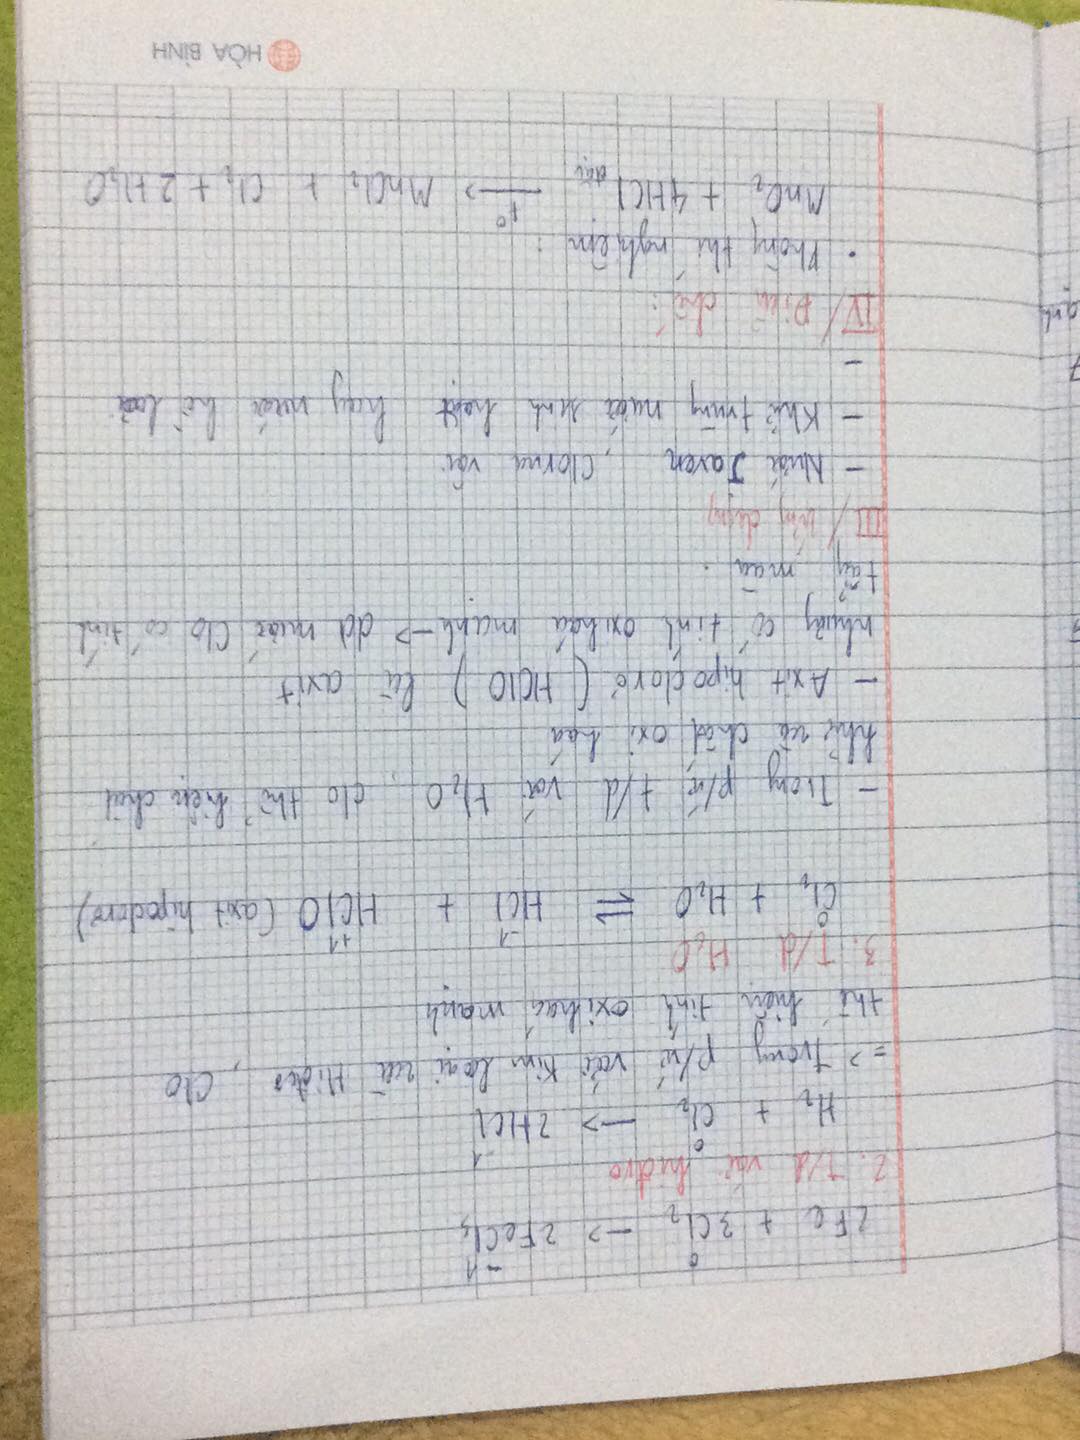 0 -1
2Fe + 3Cl₂ -> 2FeCl₃
2. T/d với hidro
0 -1
H₂ + Cl₂ -> 2HCl
=> Trong p/ứ với kim loại và Hidro, Clo
thể hiện tính oxi hoá mạnh
3. T/d H₂O
0 -1 +1
Cl₂ + H₂O ⇌ HCl + HClO (axit hipoclorơ)
- Trong p/ứ t/d với H₂O, clo thể hiện chất
khử và chất oxi hoá
- Axit hipoclorơ (HClO) là axit
nhưng có tính oxi hoá mạnh -> dd nước Clo có tính
tẩy màu.
III/ Ứng dụng
- Nước Javen, Clorua vôi
- Khử trùng nước sinh hoạt hay nước hồ bơi
-
IV/ Điều chế:
• Phòng thí nghiệm:
t°
MnO₂ + 4HCl đặc -> MnCl₂ + Cl₂ + 2H₂O
HÒA BÌNH